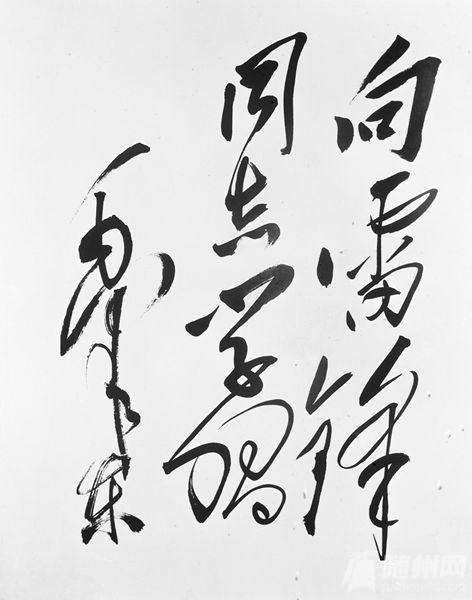 向雷锋
同志学习
毛泽东
随州网